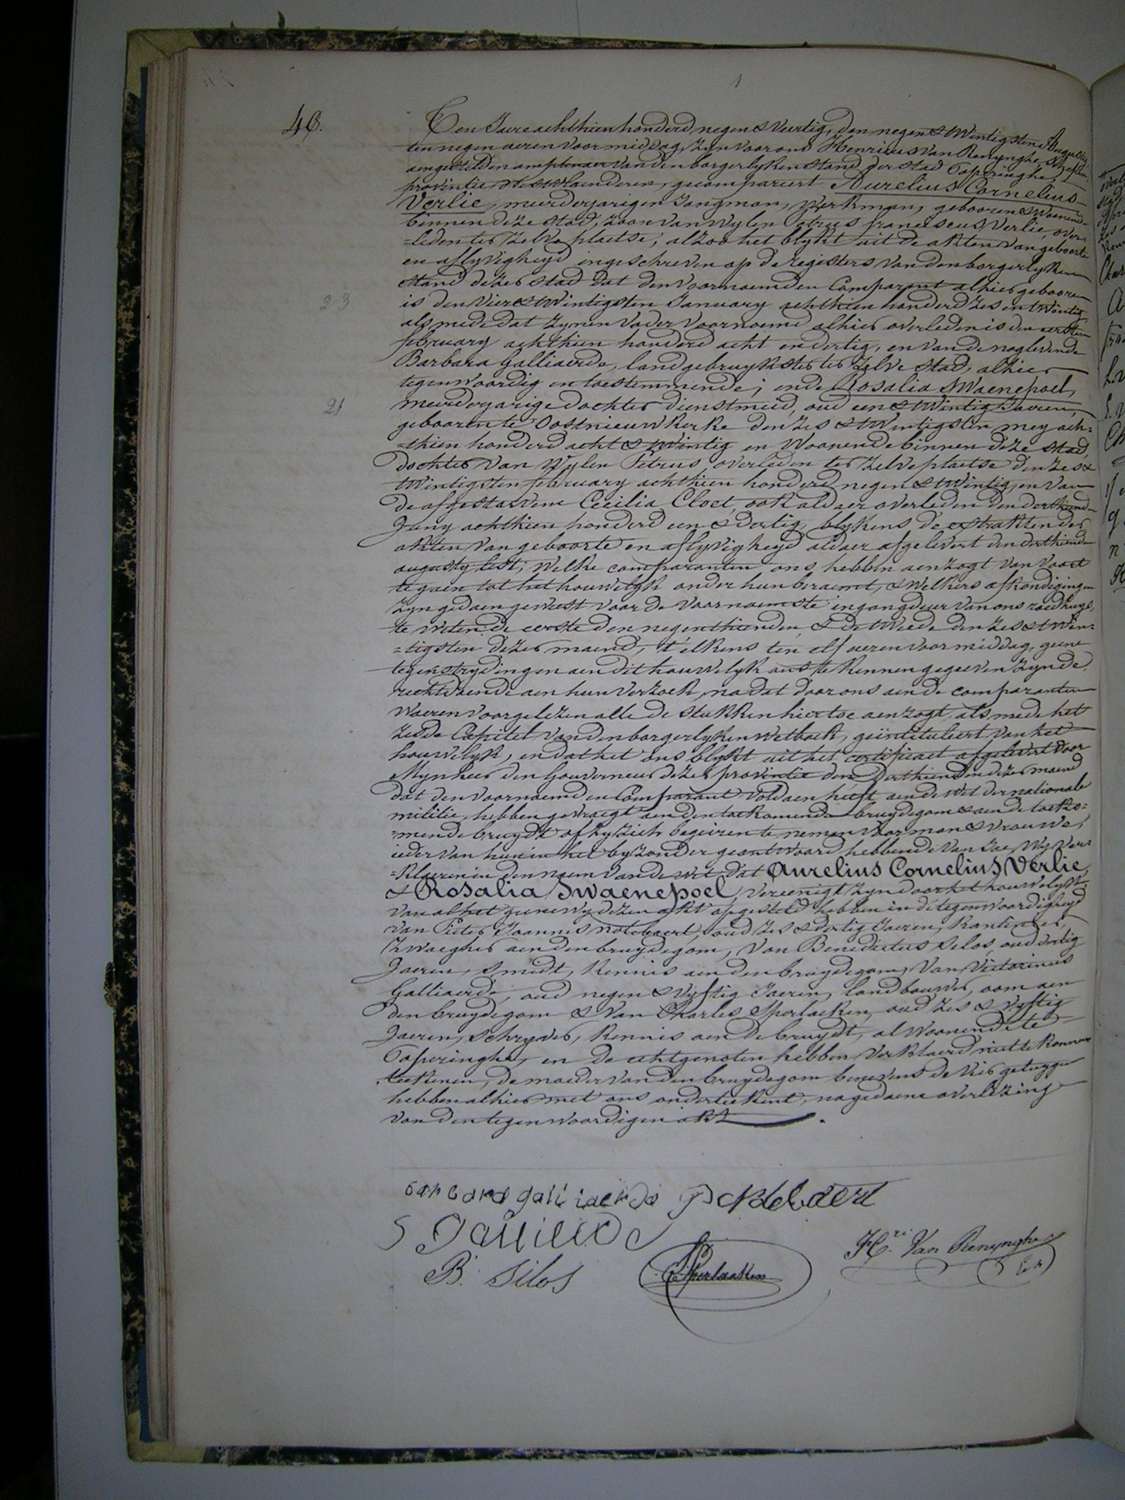 48.
Ten Jare achthien honderd negen & veertig, den negen & twintigsten Augusty
ten negen ueren voormiddag, zyn voor ons Henricus Van Renynghe, Schepen
aengestelden ampbenaer van den borgerlyken stand der stad Poperinghe,
provintie Westvlaenderen, gecompareert Aurelius Cornelius
Verlie, meerderjarigen Jongman, Werkman, gebooren & woonende
binnen deze stad, zoon van Wylen Petrus franciscus Verlie, over-
=leden ter zelve plaetse, alzoo het blykt uit de akten van geboorte
en aflyvigheyd ingeschreven op de registers van den borgerlyken
stand dezer stad dat den voornoemden Comparant alhier gebooren
23
is den vier & twintigsten January achthien honderd zes en twintig
als mede dat zynen Vader voornoemd alhier overleden is den eersten
february achthien honderd acht en dertig, en van de naglevende
Barbara Galliaerde, landgebruykster ter zelve stad, alhier
tegenwoordig en toestemmende; ende Rosalia Swaenepoel,
21
meerderjarige dochter, dienstmeid, oud een & twintig Jaeren,
geboren te Oostnieuwkerke den zes & twintigsten mey ach-
=thien honderd acht & twintig en woonende binnen deze stad,
dochter van Wylen Petrus, overleden ter zelve plaetse den zes &
twintigsten february achthien honderd negen & twintig, en van
de afgestorvene Cecilia Cloet, ook aldaer overleden den derthienden
Juny achthien honderd een & dertig, blykens de extrakten der
akten van geboorte en aflyvigheyd aldaer afgelevert den derthienden
augusty lest; welke comparanten ons hebben aenzogt van voort
te gaen tot het houwelyk onder hun beraemt, & welkers afkondigingen
zyn gedaen geweest voor de voornaemste ingangdeur van ons raedhuys,
te weten de eerste den negenthienden & de tweede den zes & twin-
=tigsten dezer maend, t'elkens ten elf ueren voormiddag, geene
tegenstrydingen aen dit houwelyk ons te kennen gegeeven zynde
rechtdoende aen hun verzoek, na dat door ons aen de comparanten
waeren voorgelezen alle de stukken hiertoe aenzogt, als mede het
zesde Capitel van den borgerlyken Wetboek, geintituleert van het
houwelyk, en dat het ons blykt uit het certificaet afgelevert door
Mynheer den Gouverneur dezer provintie den derthienden dezer maend
dat den voornoemden Comparant voldaen heeft aen de wet der nationale
militie, hebben gevraegt aen den toekomende bruydegom & aen de toeko-
=mende bruydt of zy zich begeiren te nemen voor man & vrouwe;
ieder van hun in het byzonder geantwoord hebbende van Jae, Wy ver-
=klaeren in den naem van de wet dat Aurelius Cornelius Verlie
& Rosalia Swaenepoel, vereenigt zyn door het houwelyk;
van al het gene wy dezen akt opgesteld hebben in de tegenwoordigheyd
van Pieter Joannis Notebaert, oud zes & dertig Jaeren, Kantinier,
zwaegher aen den bruydegom, van Benedictus Silos oud dertig
Jaeren, Smidt, Kennis aen den bruydegom, van Victorinus
Galliaerde, oud negen & vyftig Jaeren, landbouwer, oom aen
den bruydegom & van Charles Sperlaeken, oud zes & vyftig
Jaeren, Schryver, Kennis aen de bruydt, al woonende te
Poperinghe, en de echtgenoten hebben verklaerd niet te konnen
teekenen, de moeder van den bruydegom benevens de vier getuygen
hebben alhier met ons onderteekent, na gedaene overlezing
van den tegenwoordigen akt.
barbara galliaerde P Notebaert
V Gallierde
B. Silos
C Sperlaeken
H.ri Van Renynghe